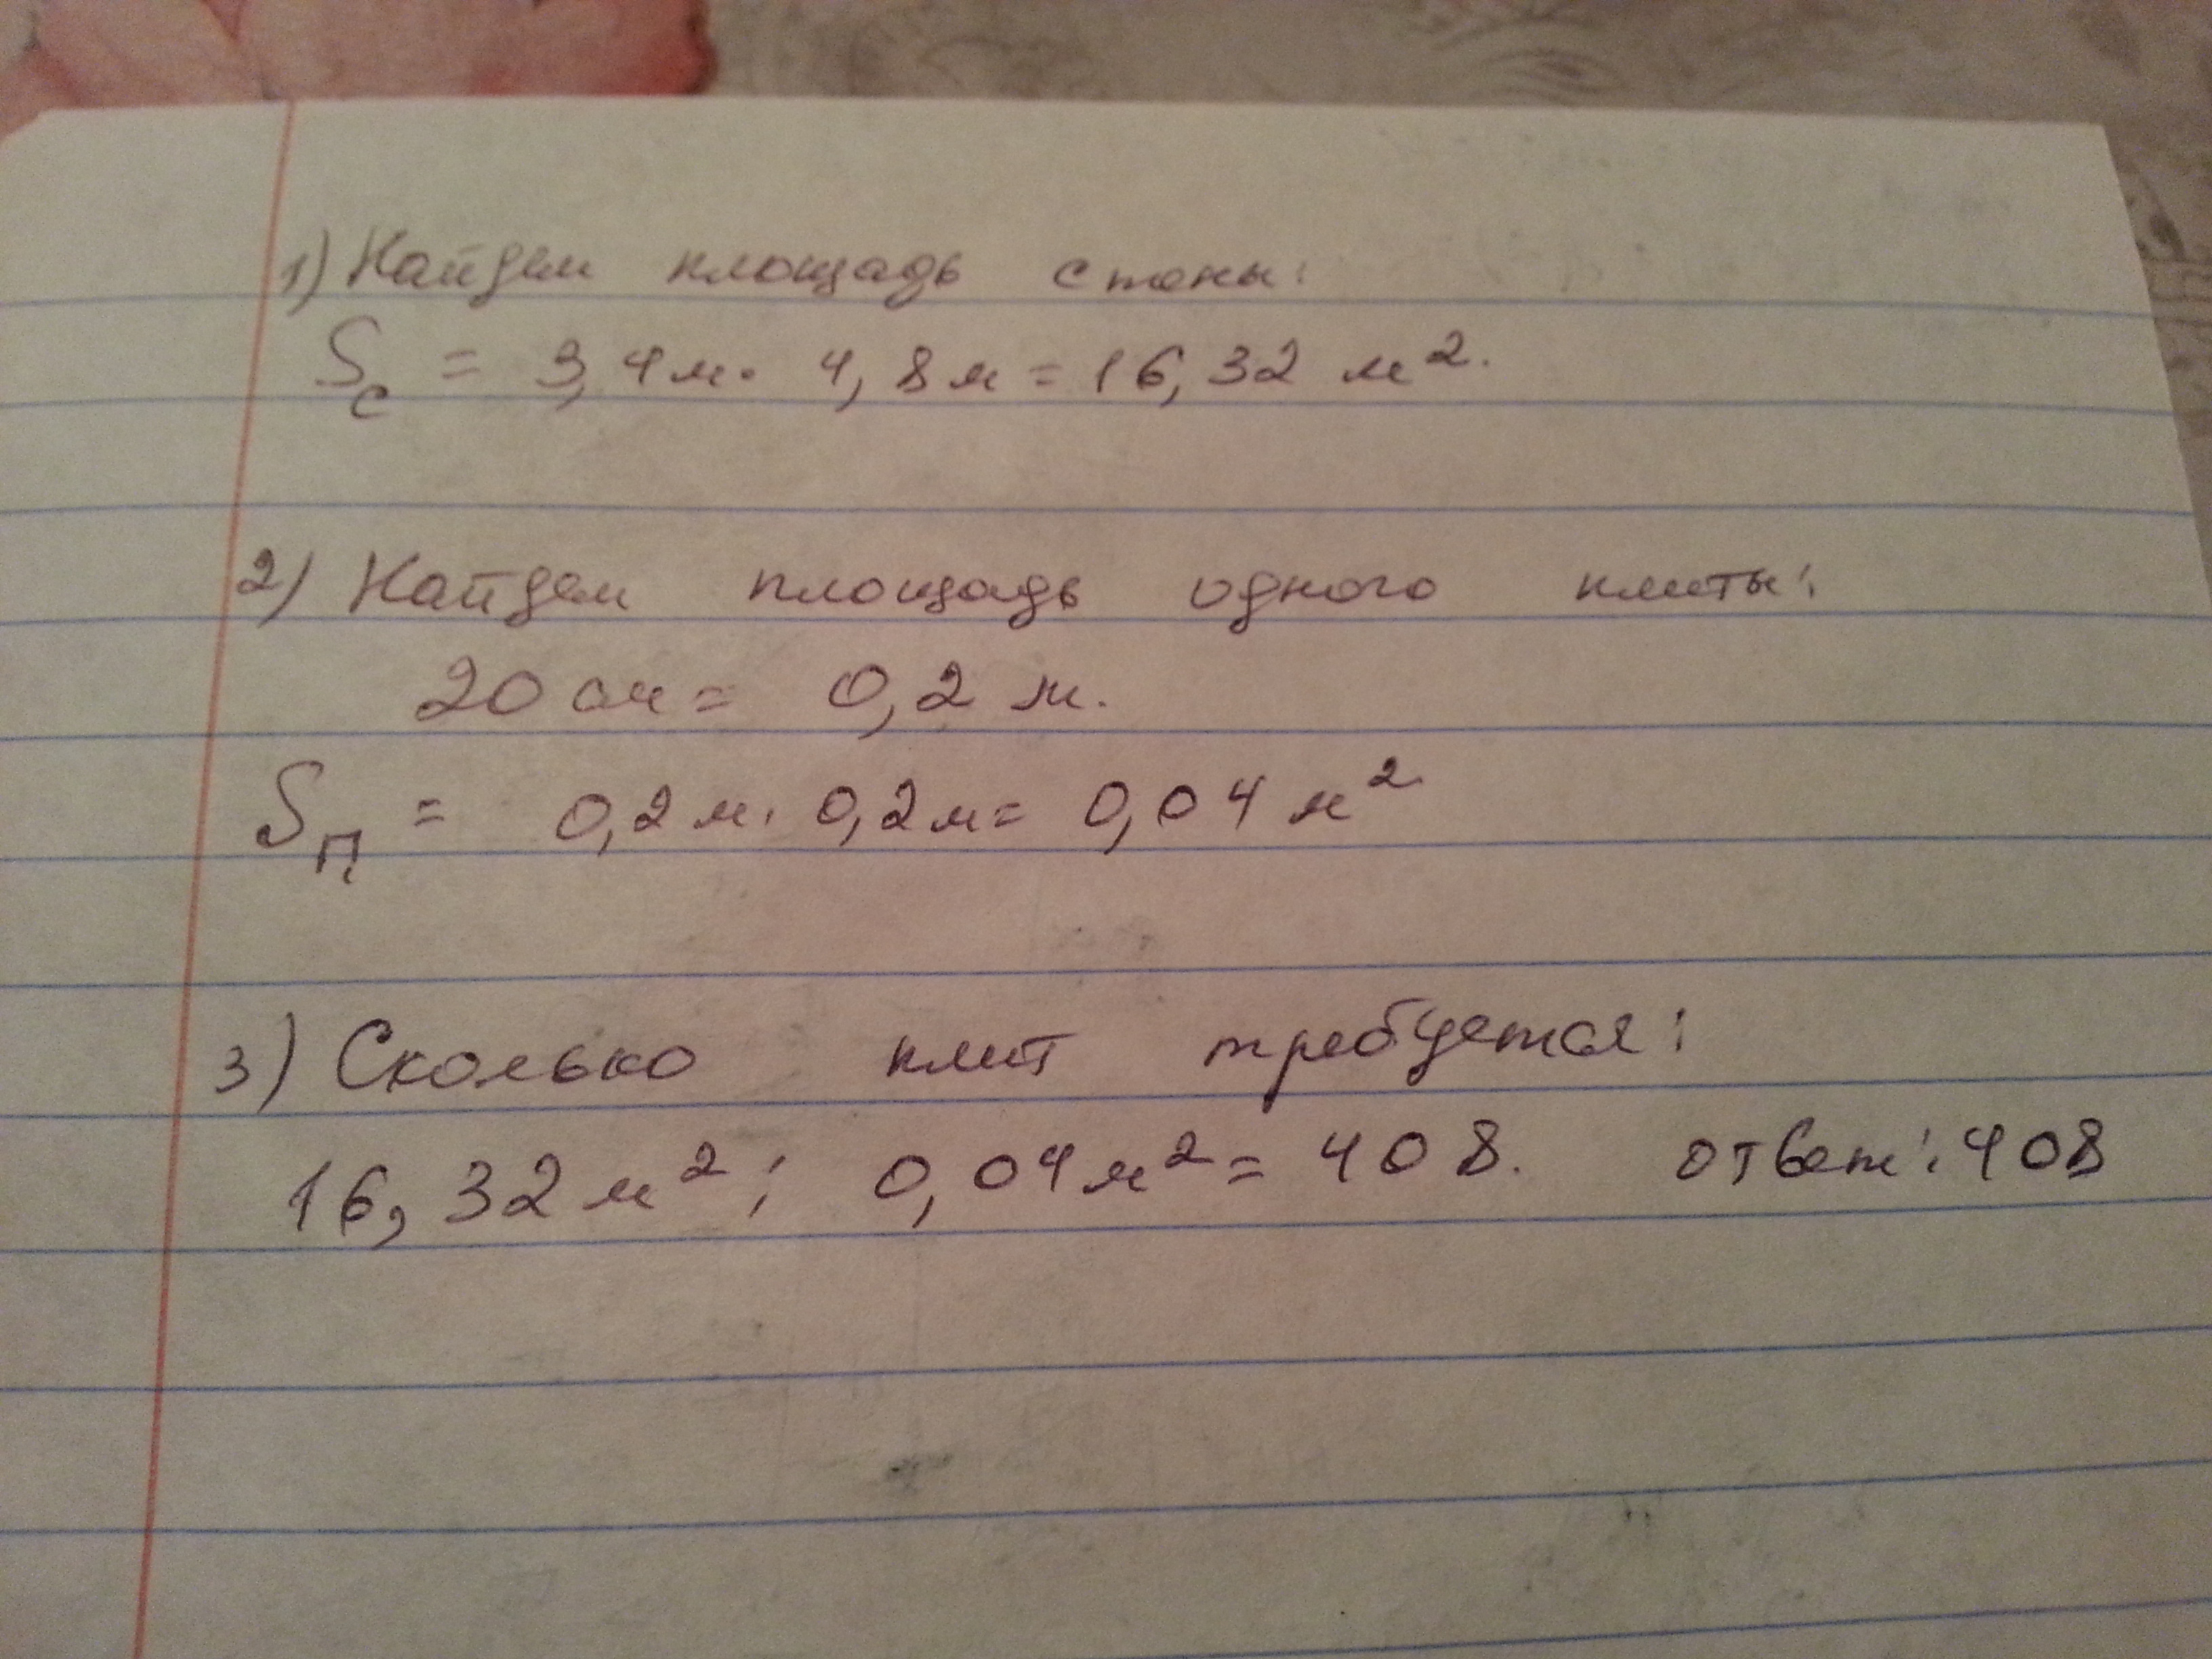 1) Найдем площадь стены:
Sс = 3,4м. 4,8м = 16,32 м².
2) Найдем площадь одного плиты:
20 см = 0,2 м.
Sп = 0,2м. 0,2м = 0,04 м²
3) Сколько плит требуется:
16,32 м² : 0,04 м² = 408. ответ: 408